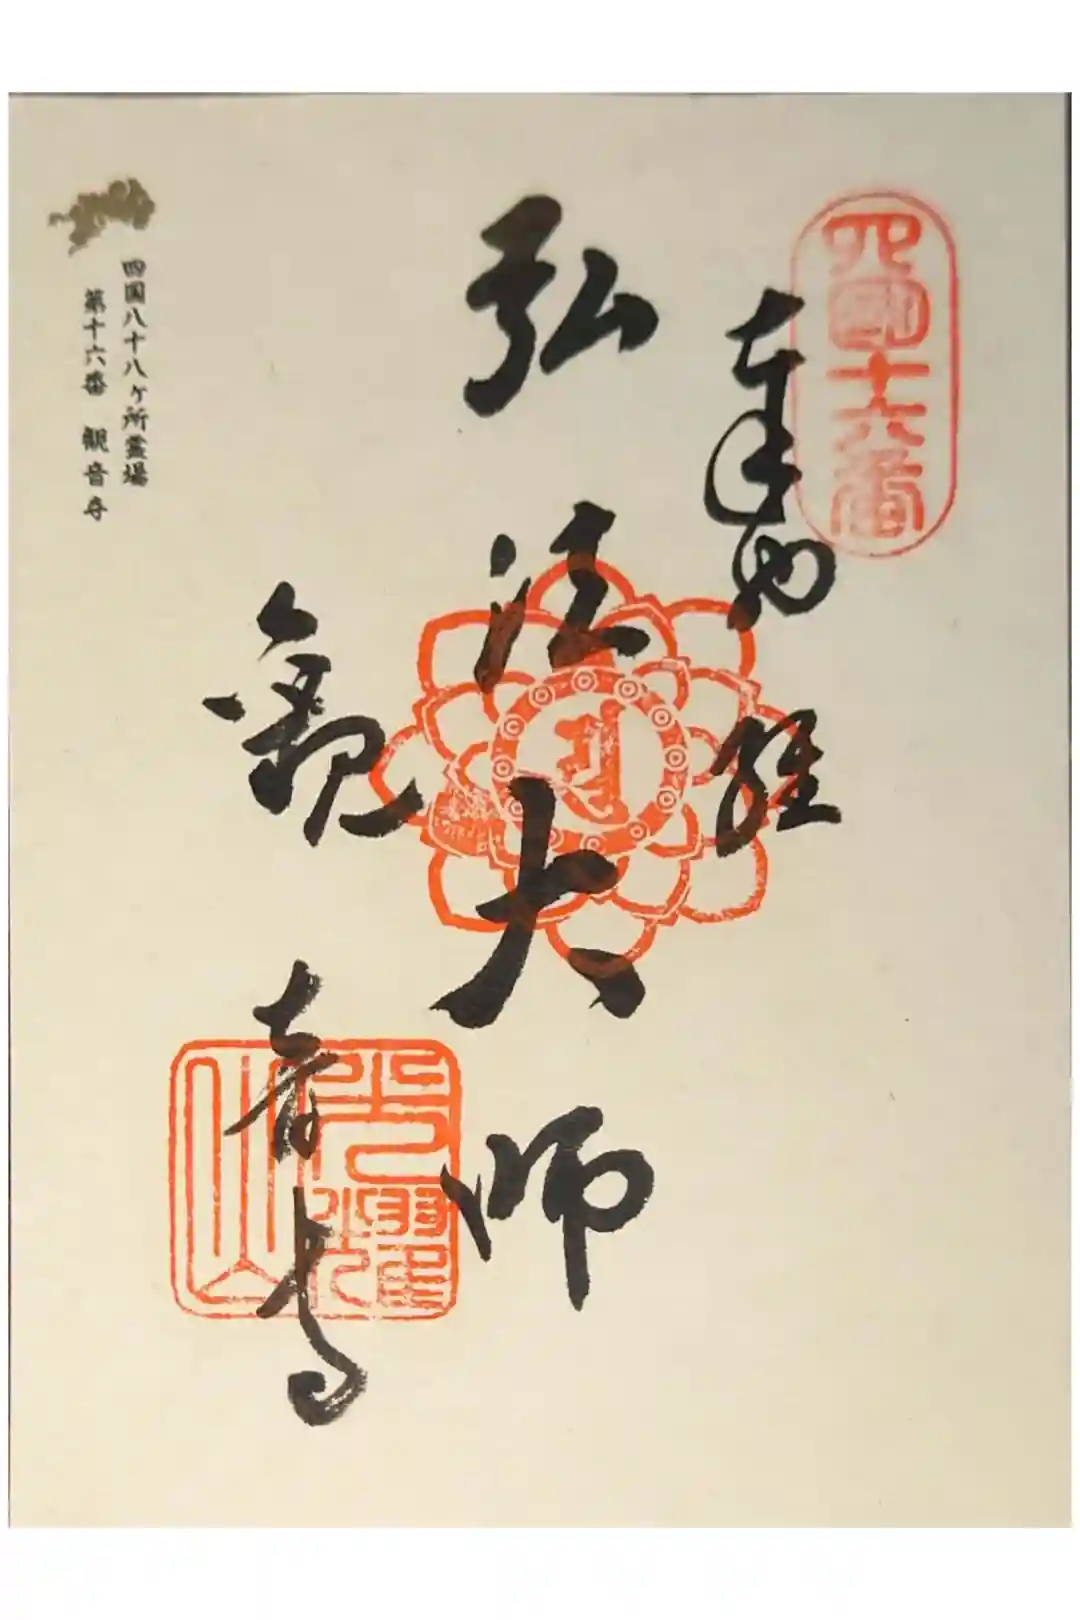 四國十六番
奉納経
弘法大師
観音寺
光耀山
四国八十八ヶ所霊場
第十六番 観音寺